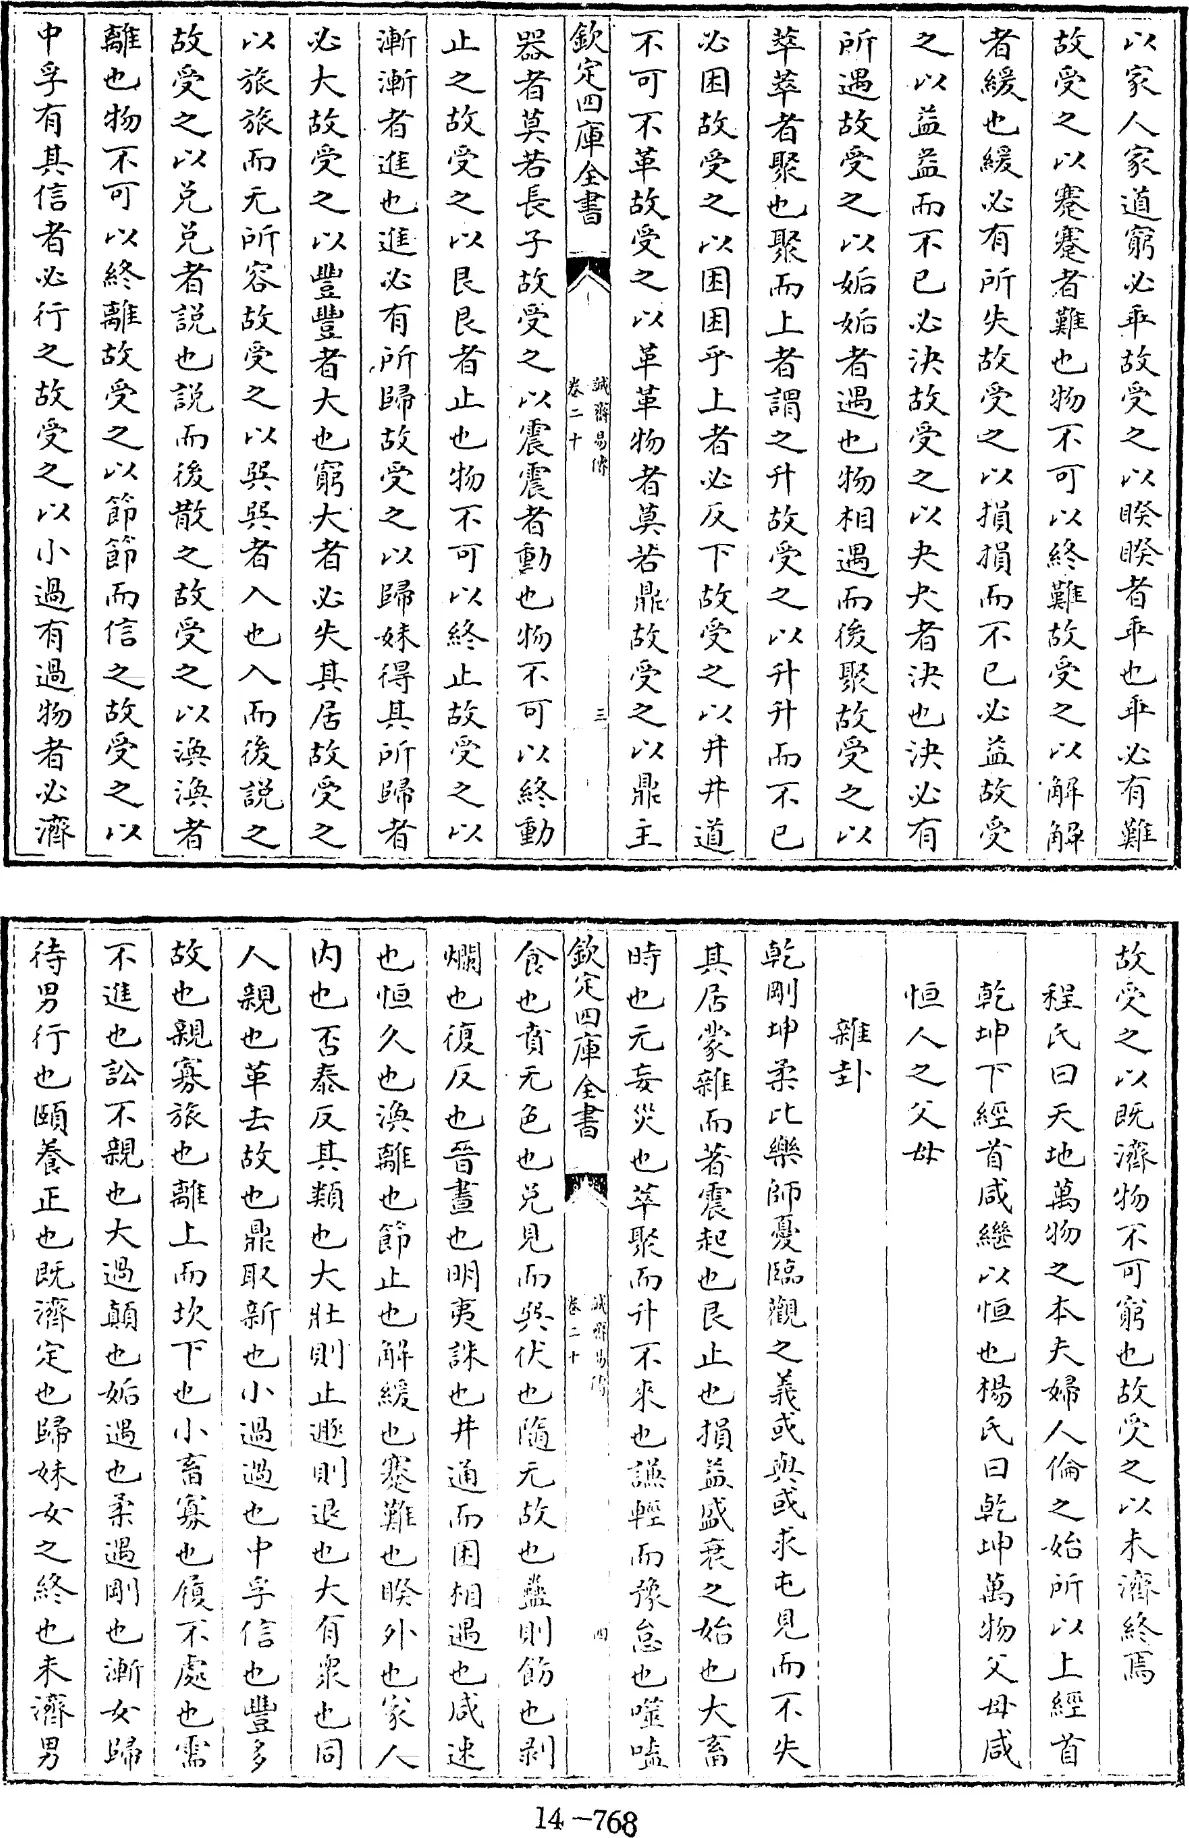 以家人家道窮必乖故受之以睽睽者乖也乖必有難
故受之以蹇蹇者難也物不可以終難故受之以解解
者緩也緩必有所失故受之以損損而不已必益故受
之以益益而不已必決故受之以夬夬者決也決必有
所遇故受之以姤姤者遇也物相遇而後聚故受之以
萃萃者聚也聚而上者謂之升故受之以升升而不已
必困故受之以困困乎上者必反下故受之以井井道
不可不革故受之以革革物者莫若鼎故受之以鼎主
欽定四庫全書
誠齋易傳
卷二十
三
器者莫若長子故受之以震震者動也物不可以終動
止之故受之以艮艮者止也物不可以終止故受之以
漸漸者進也進必有所歸故受之以歸妹得其所歸者
必大故受之以豐豐者大也窮大者必失其居故受之
以旅旅而无所容故受之以巽巽者入也入而後說之
故受之以兌兌者說也說而後散之故受之以渙渙者
離也物不可以終離故受之以節節而信之故受之以
中孚有其信者必行之故受之以小過有過物者必濟
故受之以既濟物不可窮也故受之以未濟終焉
程氏曰天地萬物之本夫婦人倫之始所以上經首
乾坤下經首咸繼以恒也楊氏曰乾坤萬物父母咸
恒人之父母
雜卦
乾剛坤柔比樂師憂臨觀之義或與或求屯見而不失
其居蒙雜而著震起也艮止也損益盛衰之始也大畜
時也无妄災也萃聚而升不來也謙輕而豫怠也噬嗑
欽定四庫全書
誠齋易傳
卷二十
四
食也賁无色也兌見而巽伏也隨无故也蠱則飭也剥
爛也復反也晉晝也明夷誅也井通而困相遇也咸速
也恒久也渙離也節止也解緩也蹇難也睽外也家人
内也否泰反其類也大壯則止遯則退也大有衆也同
人親也革去故也鼎取新也小過過也中孚信也豐多
故也親寡旅也離上而坎下也小畜寡也履不處也需
不進也訟不親也大過顛也姤遇也柔遇剛也漸女歸
待男行也頤養正也既濟定也歸妹女之終也未濟男
14-768